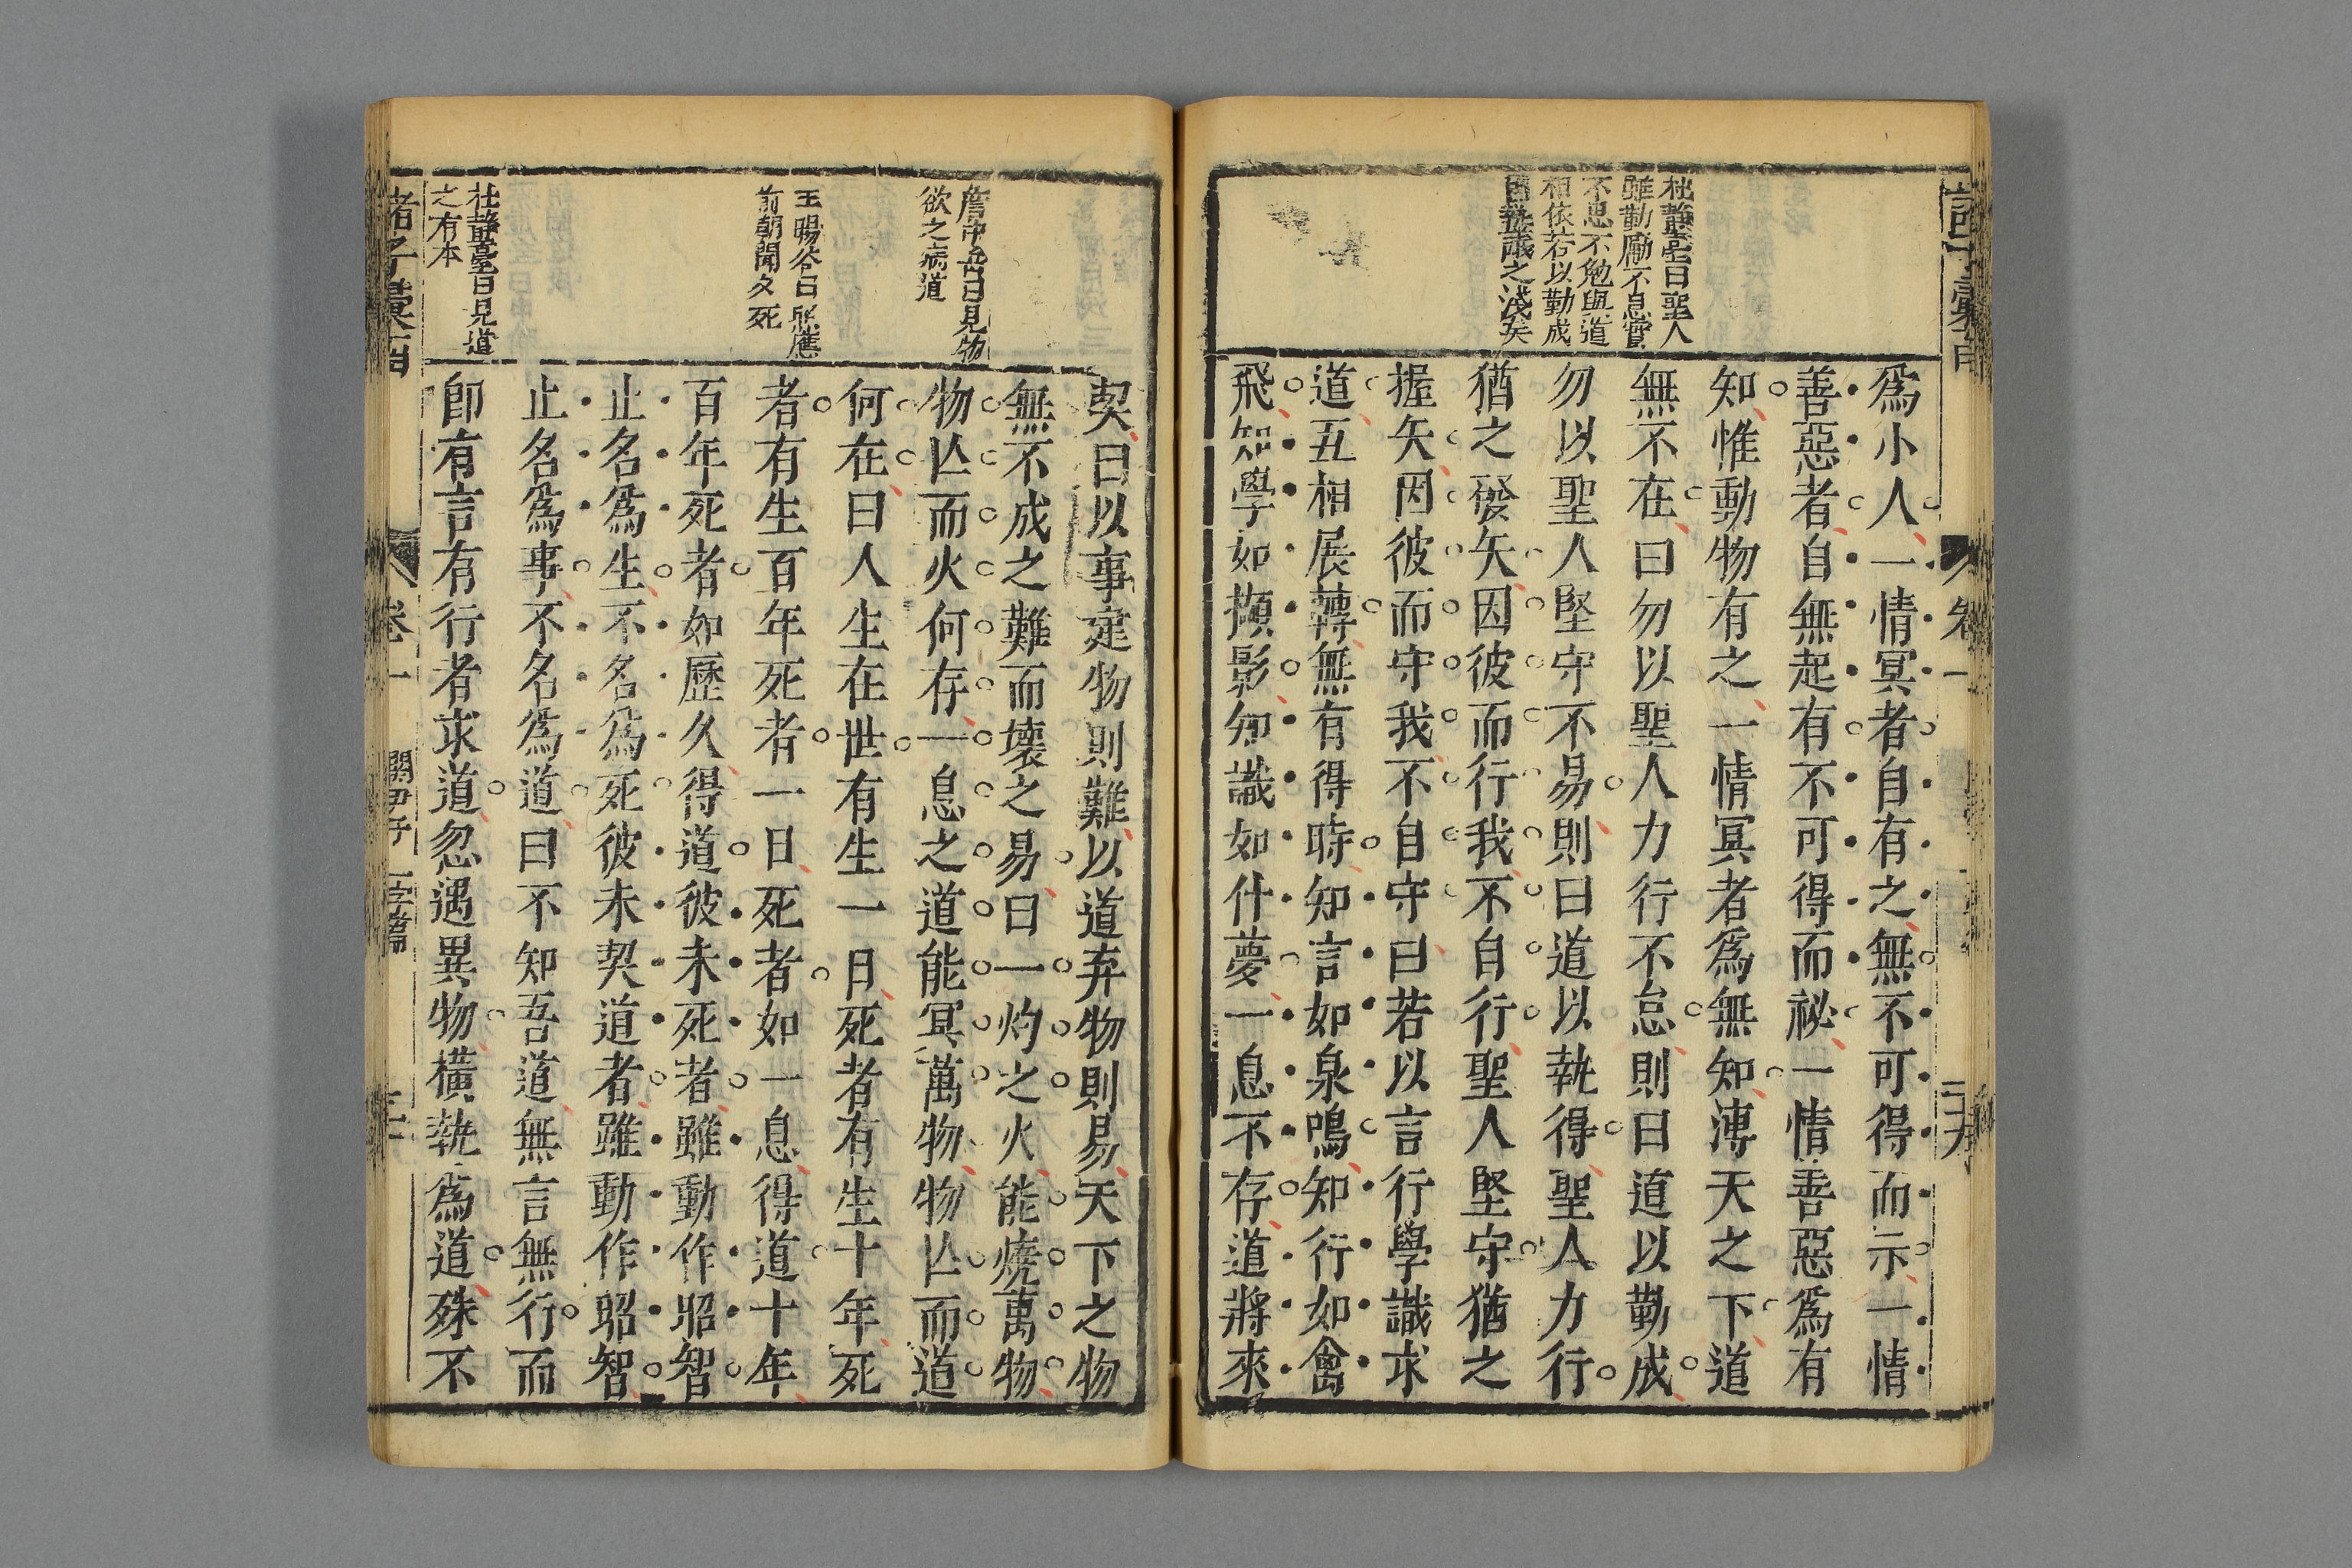 杜靜臺曰聖人
雖勤勵不息實
不思不勉與道
相依若以勤成
執得議之淺矣
為小人一情冥者自有之無不可得而示一情
善惡者自無起有不可得而祕一情善惡為有
知惟動物有之一情冥者為無知溥天之下道
無不在曰勿以聖人力行不怠則曰道以勤成
勿以聖人堅守不易則曰道以執得聖人力行
猶之發矢因彼而行我不自行聖人堅守猶之
握矢因彼而守我不自守曰若以言行學識求
道五相展轉無有得時知言如泉鳴知行如禽
飛知學如擷影知識如什夢一息不存道將來
詹中岳曰見物
欲之病道
王暘谷曰照應
前朝聞夕死
杜靜臺曰見道
之有本
契曰以事建物則難以道弃物則易天下之物
無不成之難而壞之易曰一灼之火能燒萬物
物亾而火何存一息之道能冥萬物物亾而道
何在曰人生在世有生一日死者有生十年死
者有生百年死者一日死者如一息得道十年
百年死者如歷久得道彼未死者雖動作昭智
止名為生不名為死彼未契道者雖動作昭智
止名為事不名為道曰不知吾道無言無行而
即有言有行者求道忽遇異物橫執為道殊不
諸子彙函
卷一
關尹子
一字篇